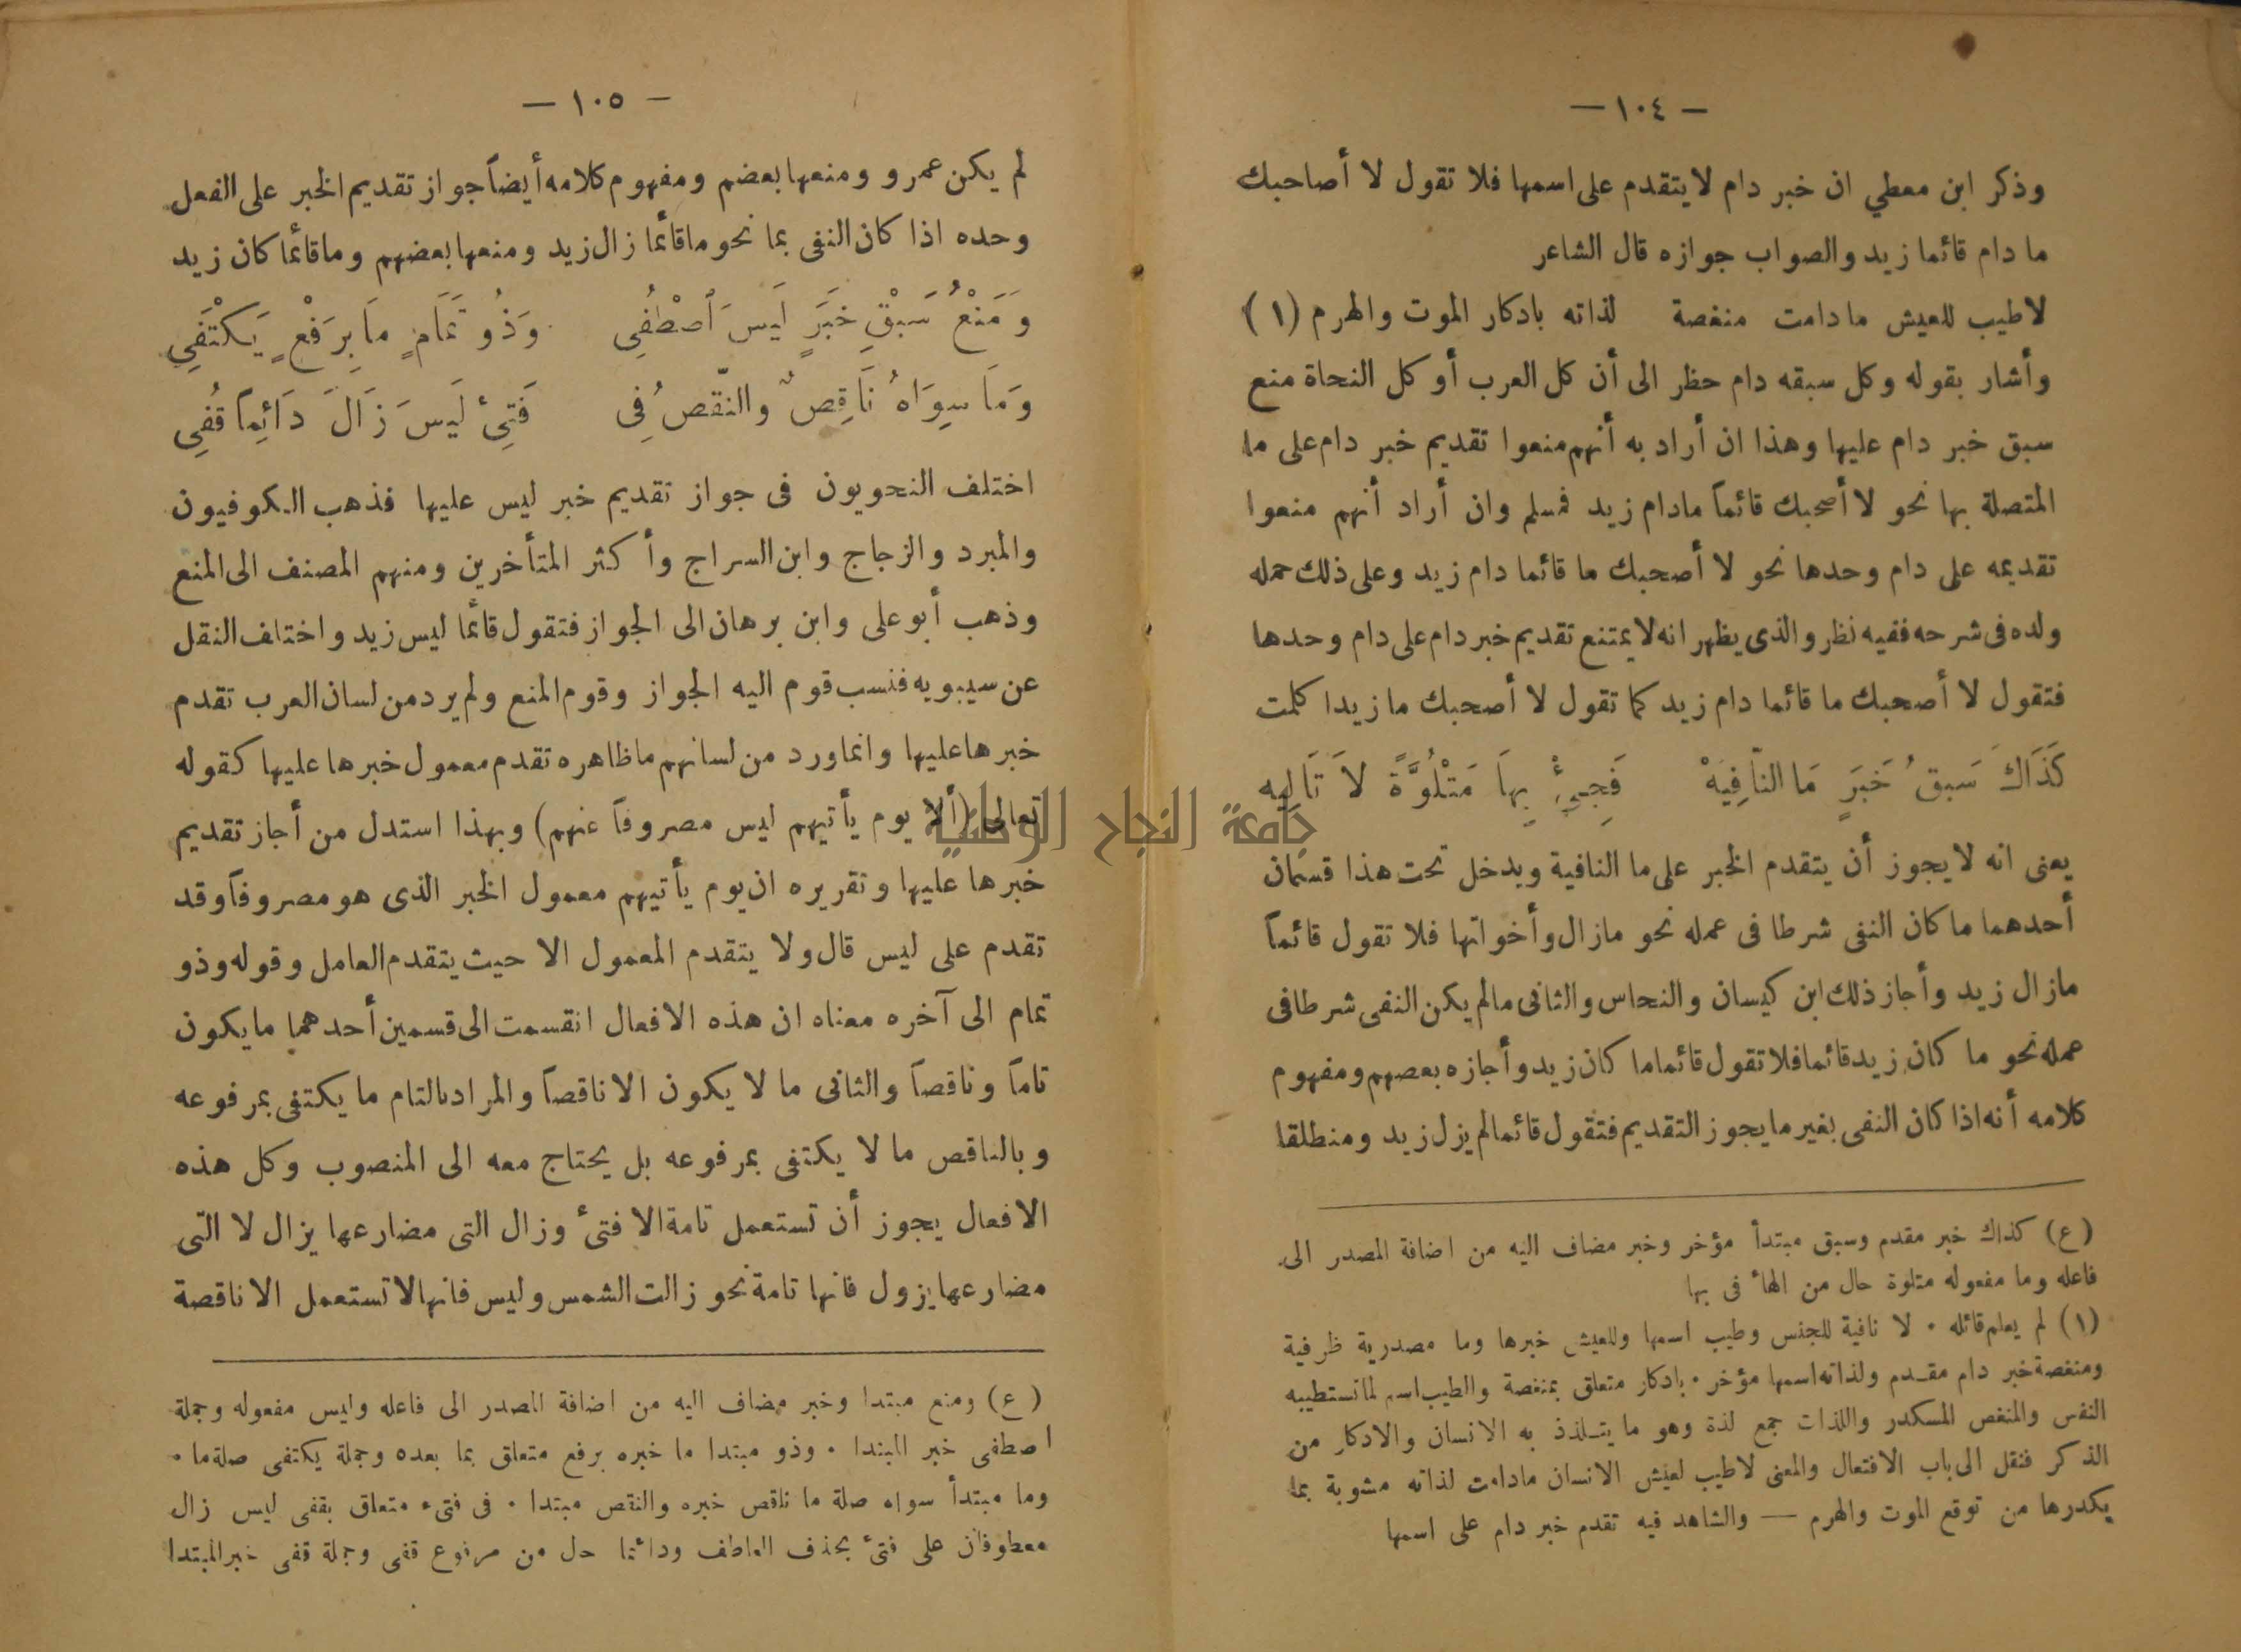 — ١٠٤ —
وذكر ابن معطي ان خبر دام لا يتقدم على اسمها فلا تقول لا أصاحبك
ما دام قائما زيد والصواب جوازه قال الشاعر
لاطيب للعيش مادامت منغصة لذاته بادكار الموت والهرم (١)
وأشار بقوله وكل سبقه دام حظر الى أن كل العرب أو كل النحاة منع
سبق خبر دام عليها وهذا ان أراد به أنهم منعوا تقديم خبر دام على ما
المتصلة بها نحو لا أصحبك قائماً مادام زيد فمسلم وان أراد أنهم منعوا
تقديمه على دام وحدها نحو لا أصحبك ما قائما دام زيد وعلى ذلك حمله
ولده فى شرحه ففيه نظر والذى يظهر انه لا يمتنع تقديم خبر دام على دام وحدها
فتقول لا أصحبك ما قائما دام زيد كما تقول لا أصحبك ما زيدا كلمت
كَذَاكَ سَبقُ خَبَرٍ مَا النَّافِيَهْ فَجِيءْ بِهَا مَتْلُوَّةً لاَ تَالِيه
يعنى انه لا يجوز أن يتقدم الخبر على ما النافية ويدخل تحت هذا قسمان
أحدهما ما كان النفى شرطا فى عمله نحو مازال وأخواتها فلا تقول قائماً
مازال زيد وأجاز ذلك ابن كيسان والنحاس والثانى مالم يكن النفى شرطا فى
عمله نحو ما كان زيد قائما فلا تقول قائما ما كان زيد وأجازه بعضهم ومفهوم
كلامه أنه اذا كان النفى بغير ما يجوز التقديم فتقول قائما لم يزل زيد ومنطلقا
(ع) كذاك خبر مقدم وسبق مبتدأ مؤخر وخبر مضاف اليه من اضافة المصدر الى
فاعله وما مفعوله متلوة حال من الهاء فى بها
(١) لم يعلم قائله ٠ لا نافية للجنس وطيب اسمها وللعيش خبرها وما مصدرية ظرفية
ومنغصة خبر دام مقدم ولذاته اسمها مؤخر ٠ بادكار متعلق بمنغصة والطيب اسم لما تستطيبه
النفس والمنغص المكدر واللذات جمع لذة وهو ما يتلذذ به الانسان والادكار من
الذكر فنقل الى باب الافتعال والمعنى لاطيب لعيش الانسان مادامت لذاته مشوبة بما
يكدرها من توقع الموت والهرم — والشاهد فيه تقدم خبر دام على اسمها
— ١٠٥ —
لم يكن عمرو ومنعها بعضم ومفهوم كلامه أيضاً جواز تقديم الخبر على الفعل
وحده اذا كان النفى بما نحو ما قائما زال زيد ومنعها بعضهم وما قائما كان زيد
وَمَنْعُ سَبْقِ خَبَرٍ لَيسَ ٱصْطُفِى وَذُو تَمَامٍ مَا بِرَفْعٍ يَكْتَفِى
وَمَا سِوَاهُ نَاقِصٌ والنّقصُ فِى فَتِىءَ لَيسَ زَالَ دَائِماً قُفِى
اختلف النحويون فى جواز تقديم خبر ليس عليها فذهب الكوفيون
والمبرد والزجاج وابن السراج وأكثر المتأخرين ومنهم المصنف الى المنع
وذهب أبو على وابن برهان الى الجواز فتقول قائما ليس زيد واختلف النقل
عن سيبويه فنسب قوم اليه الجواز وقوم المنع ولم يرد من لسان العرب تقدم
خبرها عليها وانما ورد من لسانهم ما ظاهره تقدم معمول خبرها عليها كقوله
تعالى (ألا يوم يأتيهم ليس مصروفاً عنهم) وبهذا استدل من أجاز تقديم
خبرها عليها وتقريره ان يوم يأتيهم معمول الخبر الذى هو مصروفاً وقد
تقدم على ليس قال ولا يتقدم المعمول الا حيث يتقدم العامل وقوله وذو
تمام الى آخره معناه ان هذه الافعال انقسمت الى قسمين أحدهما ما يكون
تاماً وناقصاً والثانى ما لا يكون الا ناقصاً والمراد بالتام ما يكتفى بمرفوعه
وبالناقص ما لا يكتفى بمرفوعه بل يحتاج معه الى المنصوب وكل هذه
الافعال يجوز أن تستعمل تامة الا فتىء وزال التى مضارعها يزال لا التى
مضارعها يزول فانها تامة نحو زالت الشمس وليس فانها لا تستعمل الا ناقصة
(ع) ومنع مبتدا وخبر مضاف اليه من اضافة المصدر الى فاعله وليس مفعوله وجملة
اصطفى خبر المبتدا ٠ وذو مبتدا ما خبره برفع متعلق بما بعده وجملة يكتفى صلة ما ٠
وما مبتدأ سواه صلة ما ناقص خبره والنقص مبتدا ٠ فى فتىء متعلق بقفى ليس زال
معطوفان على فتىء بحذف العاطف ودائما حال من مرفوع قفى وجملة قفى خبر المبتدا
جامعة النجاح الوطنية